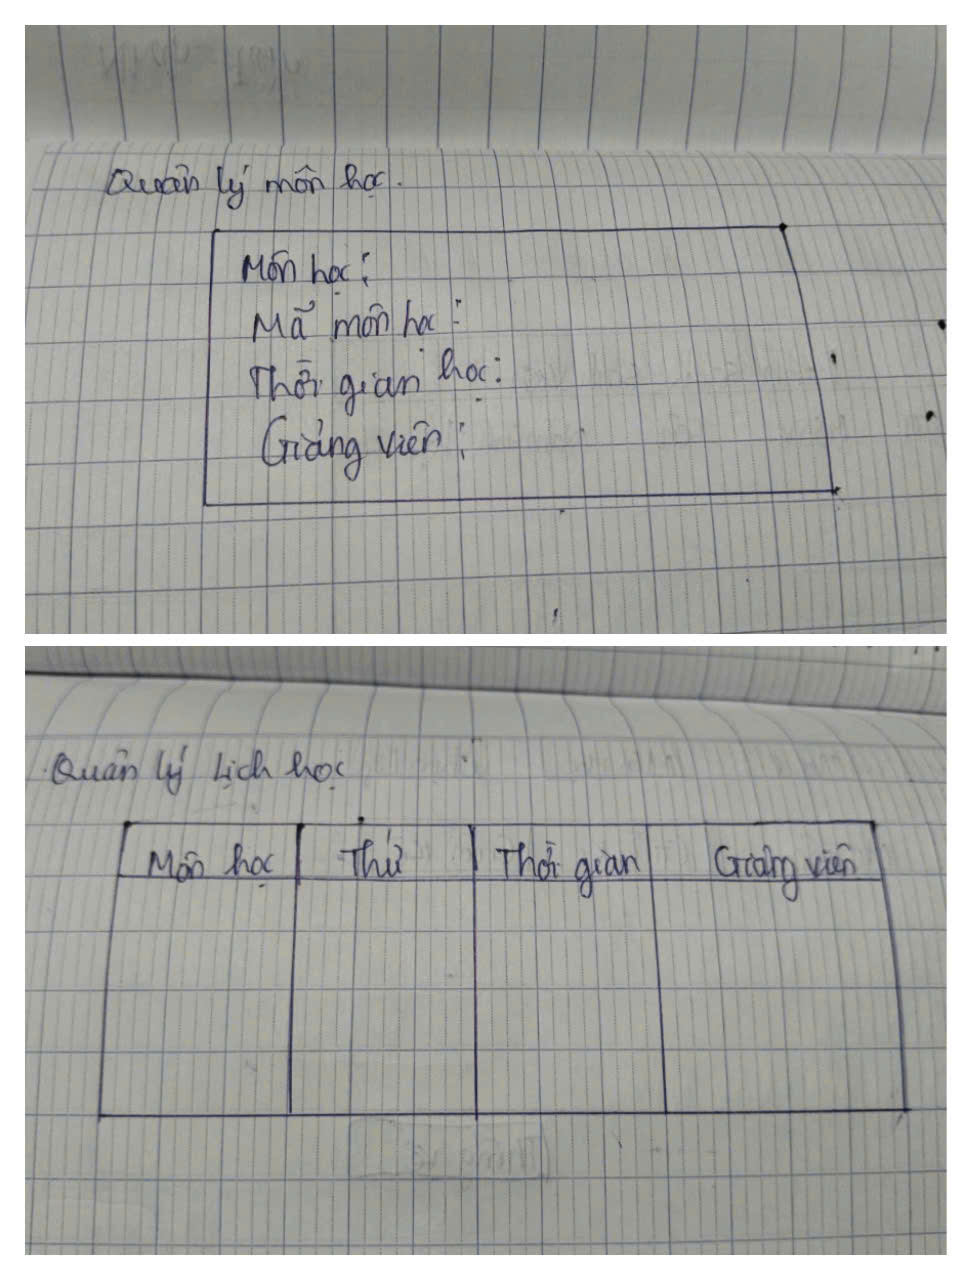 Quản lý môn học.
Môn học:
Mã môn học:
Thời gian học:
Giảng viên:
Quản lý Lịch học
Môn học Thứ Thời gian Giảng viên